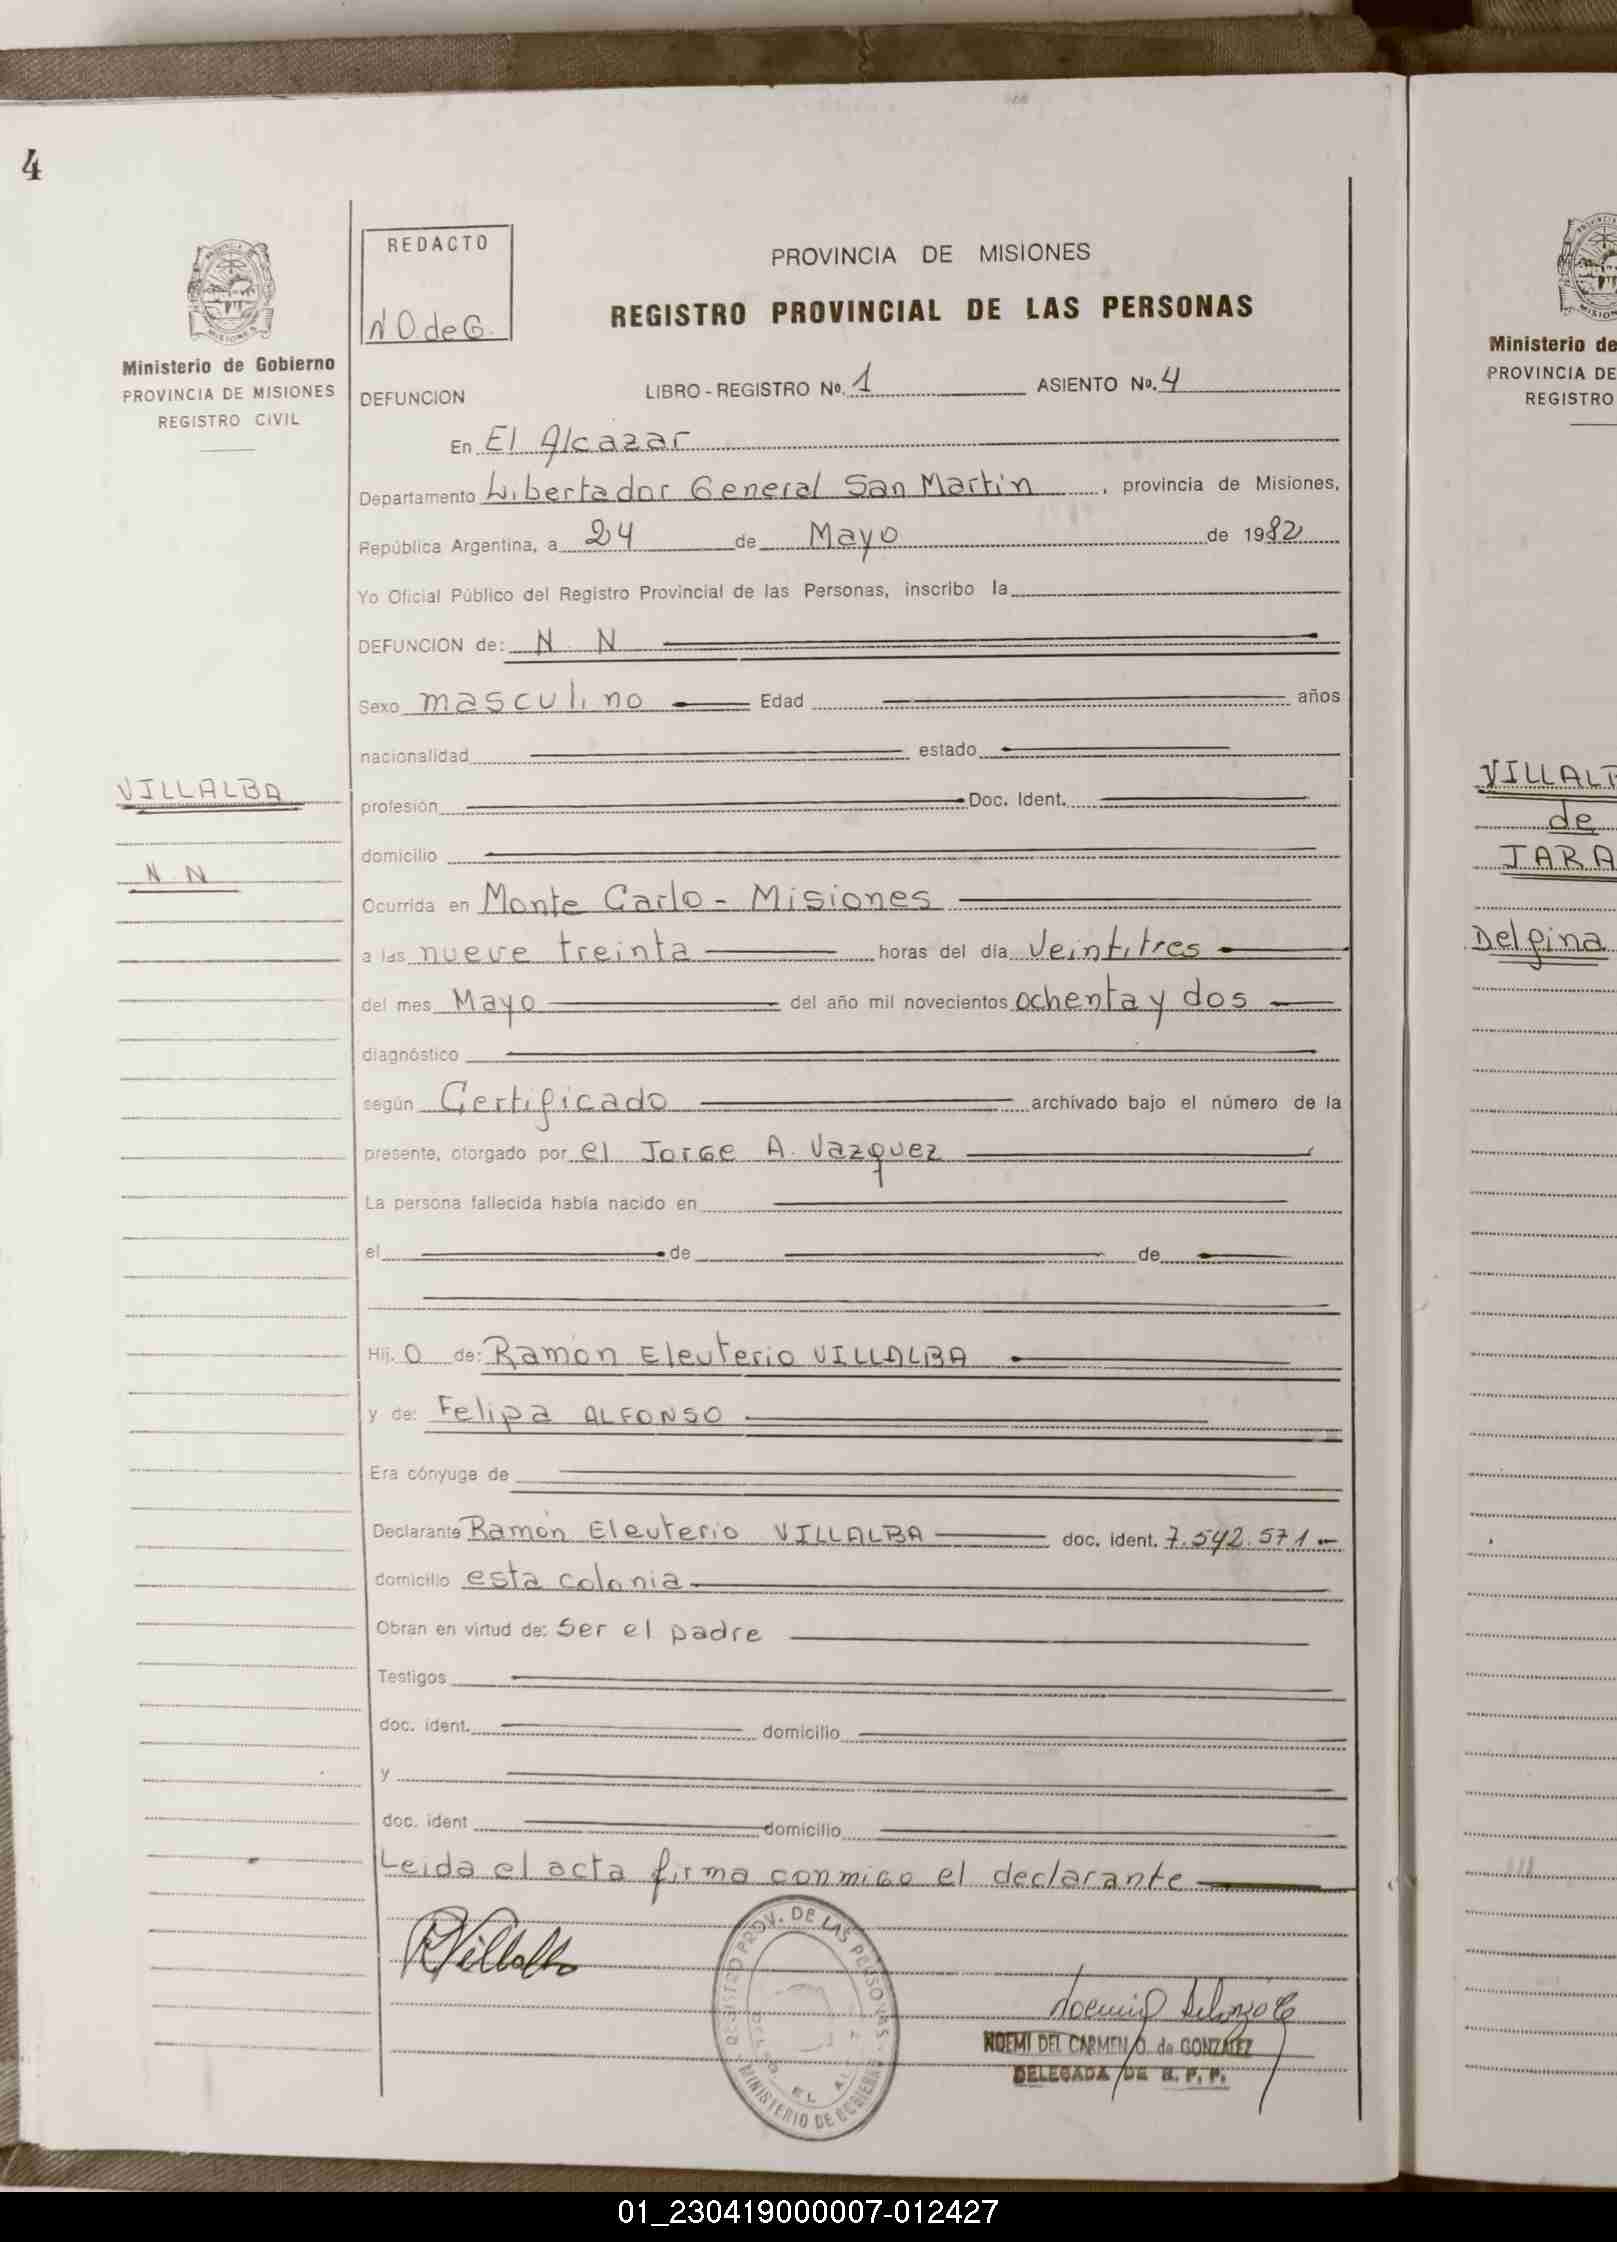 4
REDACTO
N O de G.
PROVINCIA DE MISIONES
REGISTRO PROVINCIAL DE LAS PERSONAS
Ministerio de Gobierno
PROVINCIA DE MISIONES
REGISTRO CIVIL
DEFUNCION LIBRO - REGISTRO No. 1 ASIENTO No. 4
En El Alcazar
Departamento Libertador General San Martin, provincia de Misiones,
República Argentina, a 24 de Mayo de 1982
Yo Oficial Público del Registro Provincial de las Personas, inscribo la
DEFUNCION de: N. N
Sexo masculino Edad años
nacionalidad estado
VILLALBA
N. N
profesión Doc. Ident.
domicilio
Ocurrida en Monte Carlo - Misiones
a las nueve treinta horas del día veintitres
del mes Mayo del año mil novecientos ochenta y dos
diagnóstico
según Certificado archivado bajo el número de la
presente, otorgado por el Jorge A. Vazquez
La persona fallecida había nacido en
el de de
Hij. o de: Ramón Eleuterio VILLALBA
y de: Felipa ALFONSO
Era cónyuge de
Declarante Ramón Eleuterio VILLALBA doc. ident. 7.542.571.-
domicilio esta colonia
Obran en virtud de: Ser el padre
Testigos
doc. ident. domicilio
y
doc. ident domicilio
Leida el acta firma conmigo el declarante
RVillalba
REGISTRO PROV. DE LAS PERSONAS
MINISTERIO DE GOBIERNO
NOEMI DEL CARMEN O. de GONZALEZ
DELEGADA DE R. P. P.
Ministerio de
PROVINCIA DE
REGISTRO
VILLALB
de
JARA
Delfina
01_230419000007-012427